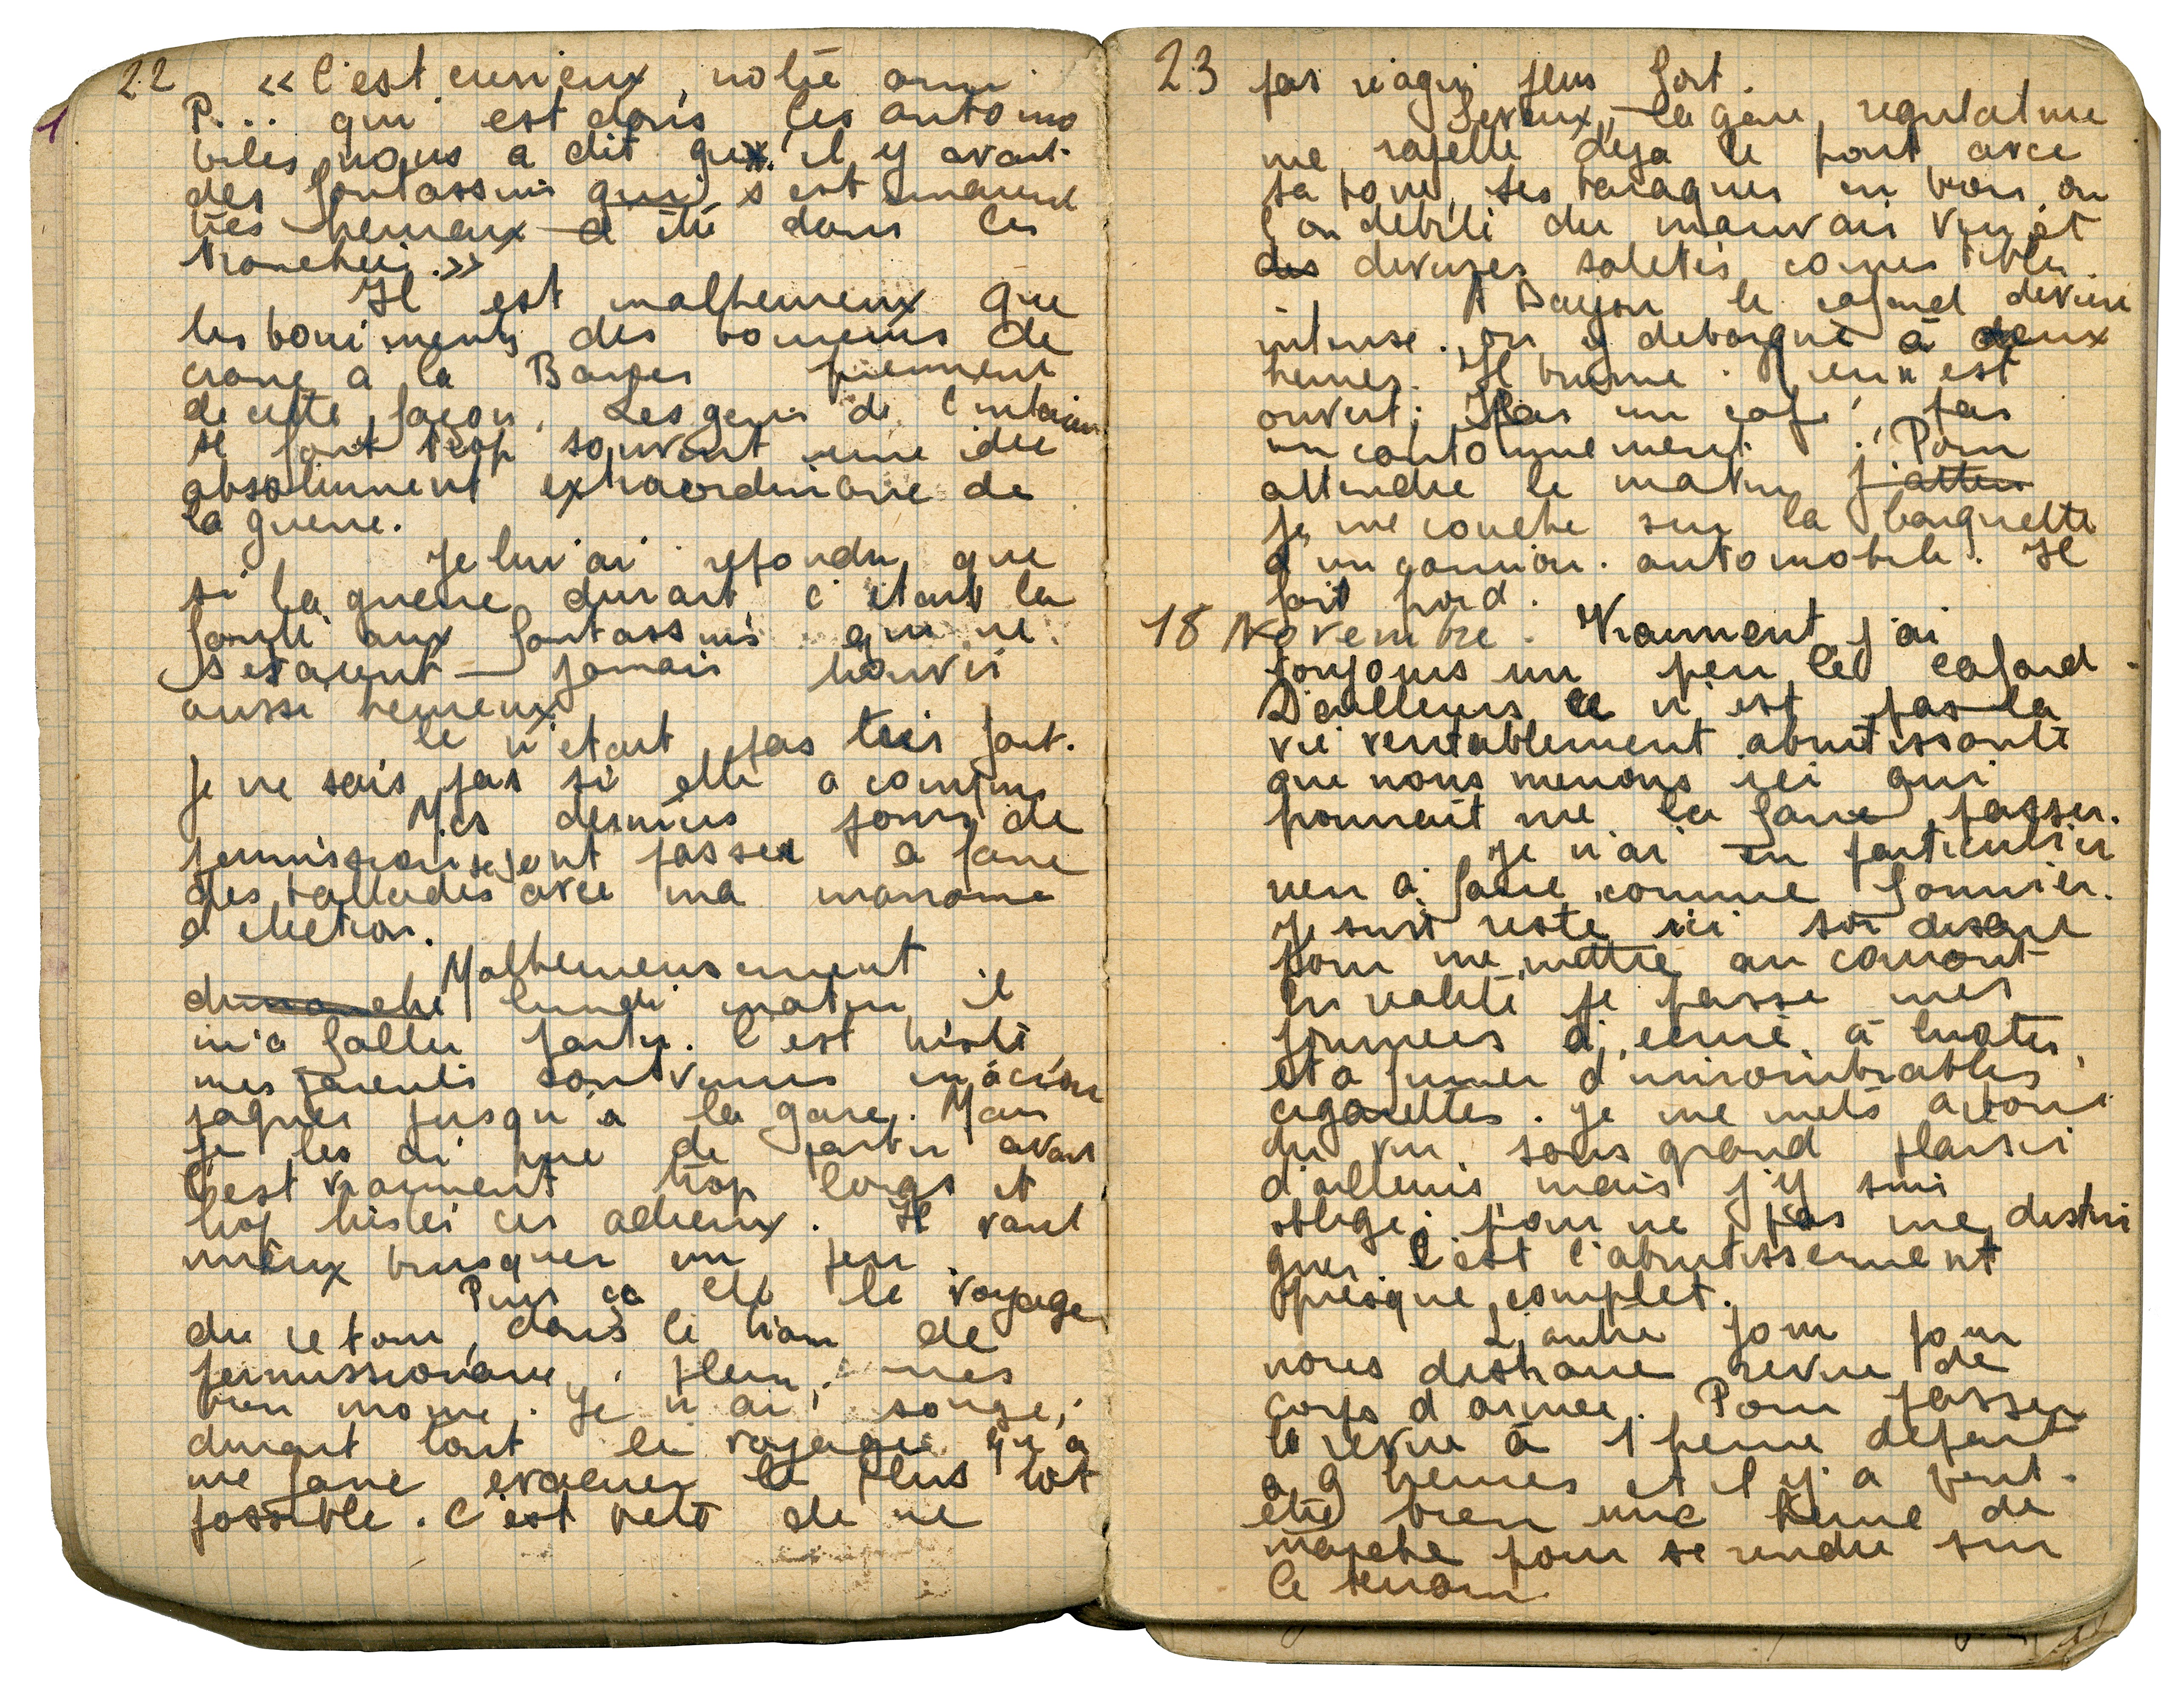 22
« C'est curieux, notre ami
P... qui est dans les automo
biles nous a dit que il y avait
des fantassins qui s'estimaient
très heureux d'être dans les
tranchées. »
Il est malheureux que
les boniments des bourreurs de
crane à la Barrès prennent
de cette façon. Les gens de l'intérieur
se font trop souvent une idée
absolument extraordinaire de
la guerre.
Je lui ai répondu que
si la guerre durait, c'était la
faute aux fantassins qui ne
seraient jamais trouvés
aussi heureux
Ce n'était pas très fort.
Je ne sais pas si elle a compris
Mes derniers jours de
permission se sont passés à faire
des ballades avec ma marraine
d'élection.
Malheureusement
dimanche lundi matin il
m'a fallu partir. C'est triste
mes parents sont venus m'accom
pagner jusqu'à la gare. Mais
je les ai prié de partir avant
C'est vraiment trop longs et
trop tristes ces adieux. Il vaut
mieux brusquer un peu
Puis ça été le voyage
du retour, dans le train de
permissionnaires, plein, mes
bien morne. Je n'ai songé,
durant tout le voyage qu'à
me faire évacuer le plus tôt
possible. C'est bête de ne
23
pas réagir plus fort.
Leveux, la gare régulatrice
me rapelle déjà le front avec
sa boue, ses baraques en bois, où
l'on débite du mauvais vin et
des diverses saletés comestibles.
A Bayon le cafard devient
intense. on y débarque à deux
heures. Il bruine. Rien n'est
ouvert; Pas un café, pas
un cantonnement. Pour
attendre le matin j'atten
je me couche sur la banquette
d'un camion automobile. Il
fait froid.
18 Novembre. Vraiment j'ai
toujours un peu le cafard.
D'ailleurs ce n'est pas la
vie véritablement abrutissante
que nous menons ici qui
pourrait me la faire passer.
Je n'ai en particulier
rien à faire comme fourrier.
Je suis resté ici soi disant
pour me mettre au courant
En réalité je passe mes
journées à écrire à
et à fumer d'innombrables
cigarettes. Je me mets à boire
du vin sans grand plaisir
d'ailleurs mais j'y suis
obligé; pour ne pas me distin
guer. C'est l'abrutissement
presque complet.
L'autre jour pour
nous distraire revue de
corps d'armée. Pour passer
la revue à 1 heure départ
à 9 heures et il y a peut-
être bien une heure de
marche pour se rendre sur
le terrain
1